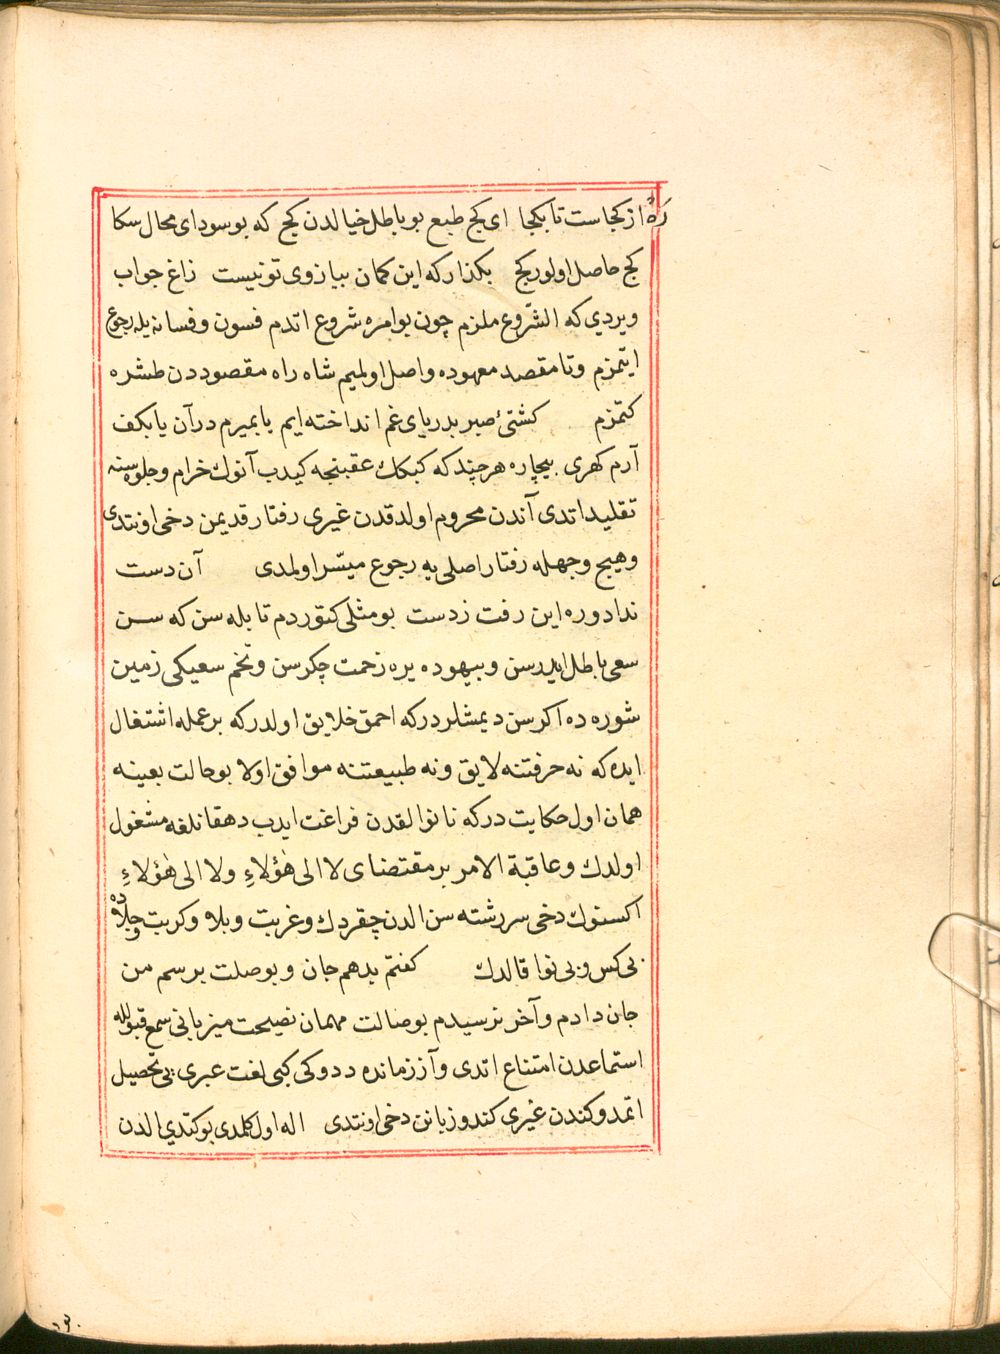 رهٔ از کجاست تا بکجا ای کج طبع بو باطل خیالدن کچ که بو سودای محال سکا
کج حاصل اولور کج بکذار که این کمان ببازوی تو نیست زاغ جواب
ویردی که الشّروع ملزم چون بو امره شروع اتدم فسون و فسانه یله رجوع
ایتمزم و تا مقصد معهوده واصل اولمیم شاه راه مقصوددن طشره
کتمزم کشتیٔ صبر بدریای غم انداخته ایم یا بمیرم در آن یا بکف
آرم کهری بیچاره هر چند که کبکك عقبنجه کیدب آنوك خرام و جلوه سنه
تقلید اتدی آندن محروم اولدقدن غیری رفتار قدیمن دخی اونتدی
وهیچ وجهله رفتار اصلی یه رجوع میسّر اولمدی آن دست
نداد و ره این رفت ز دست بو مثلی کتوردم تا بله سن که سن
سعی باطل ایدرسن و بیهوده یره زحمت چکرسن و تخم سعیکی زمین
شوره ده اکرسن دیمشلردر که احمق خلایق اولدر که بر عمله اشتغال
ایده که نه حرفتنه لایق ونه طبیعتنه موافق اولا بو حالت بعینه
همان اول حکایت درکه نانوالقدن فراغت ایدب دهقانلغه مشغول
اولدك وعاقبة الامر بر مقتضای لا الی هٰؤلاءِ ولا الی هٰؤلاءِ
اکسنوك دخی سررشته سن الدن چقردك و غربت و بلاه و کربت و جلاده
بی کس و بی نوا قالدك کفتم بدهم جان و بوصلت برسم من
جان دادم و آخر نرسیدم بوصالت مهمان نصیحت میزبانی سمع قبوللە
استماعدن امتناع اتدی و آز زمانده ددوکی کبی لغت عبری یی تحصیل
اتمدوکندن غیری کندو زبانن دخی اونتدی اله اول کلمدی بو کتدی الدن